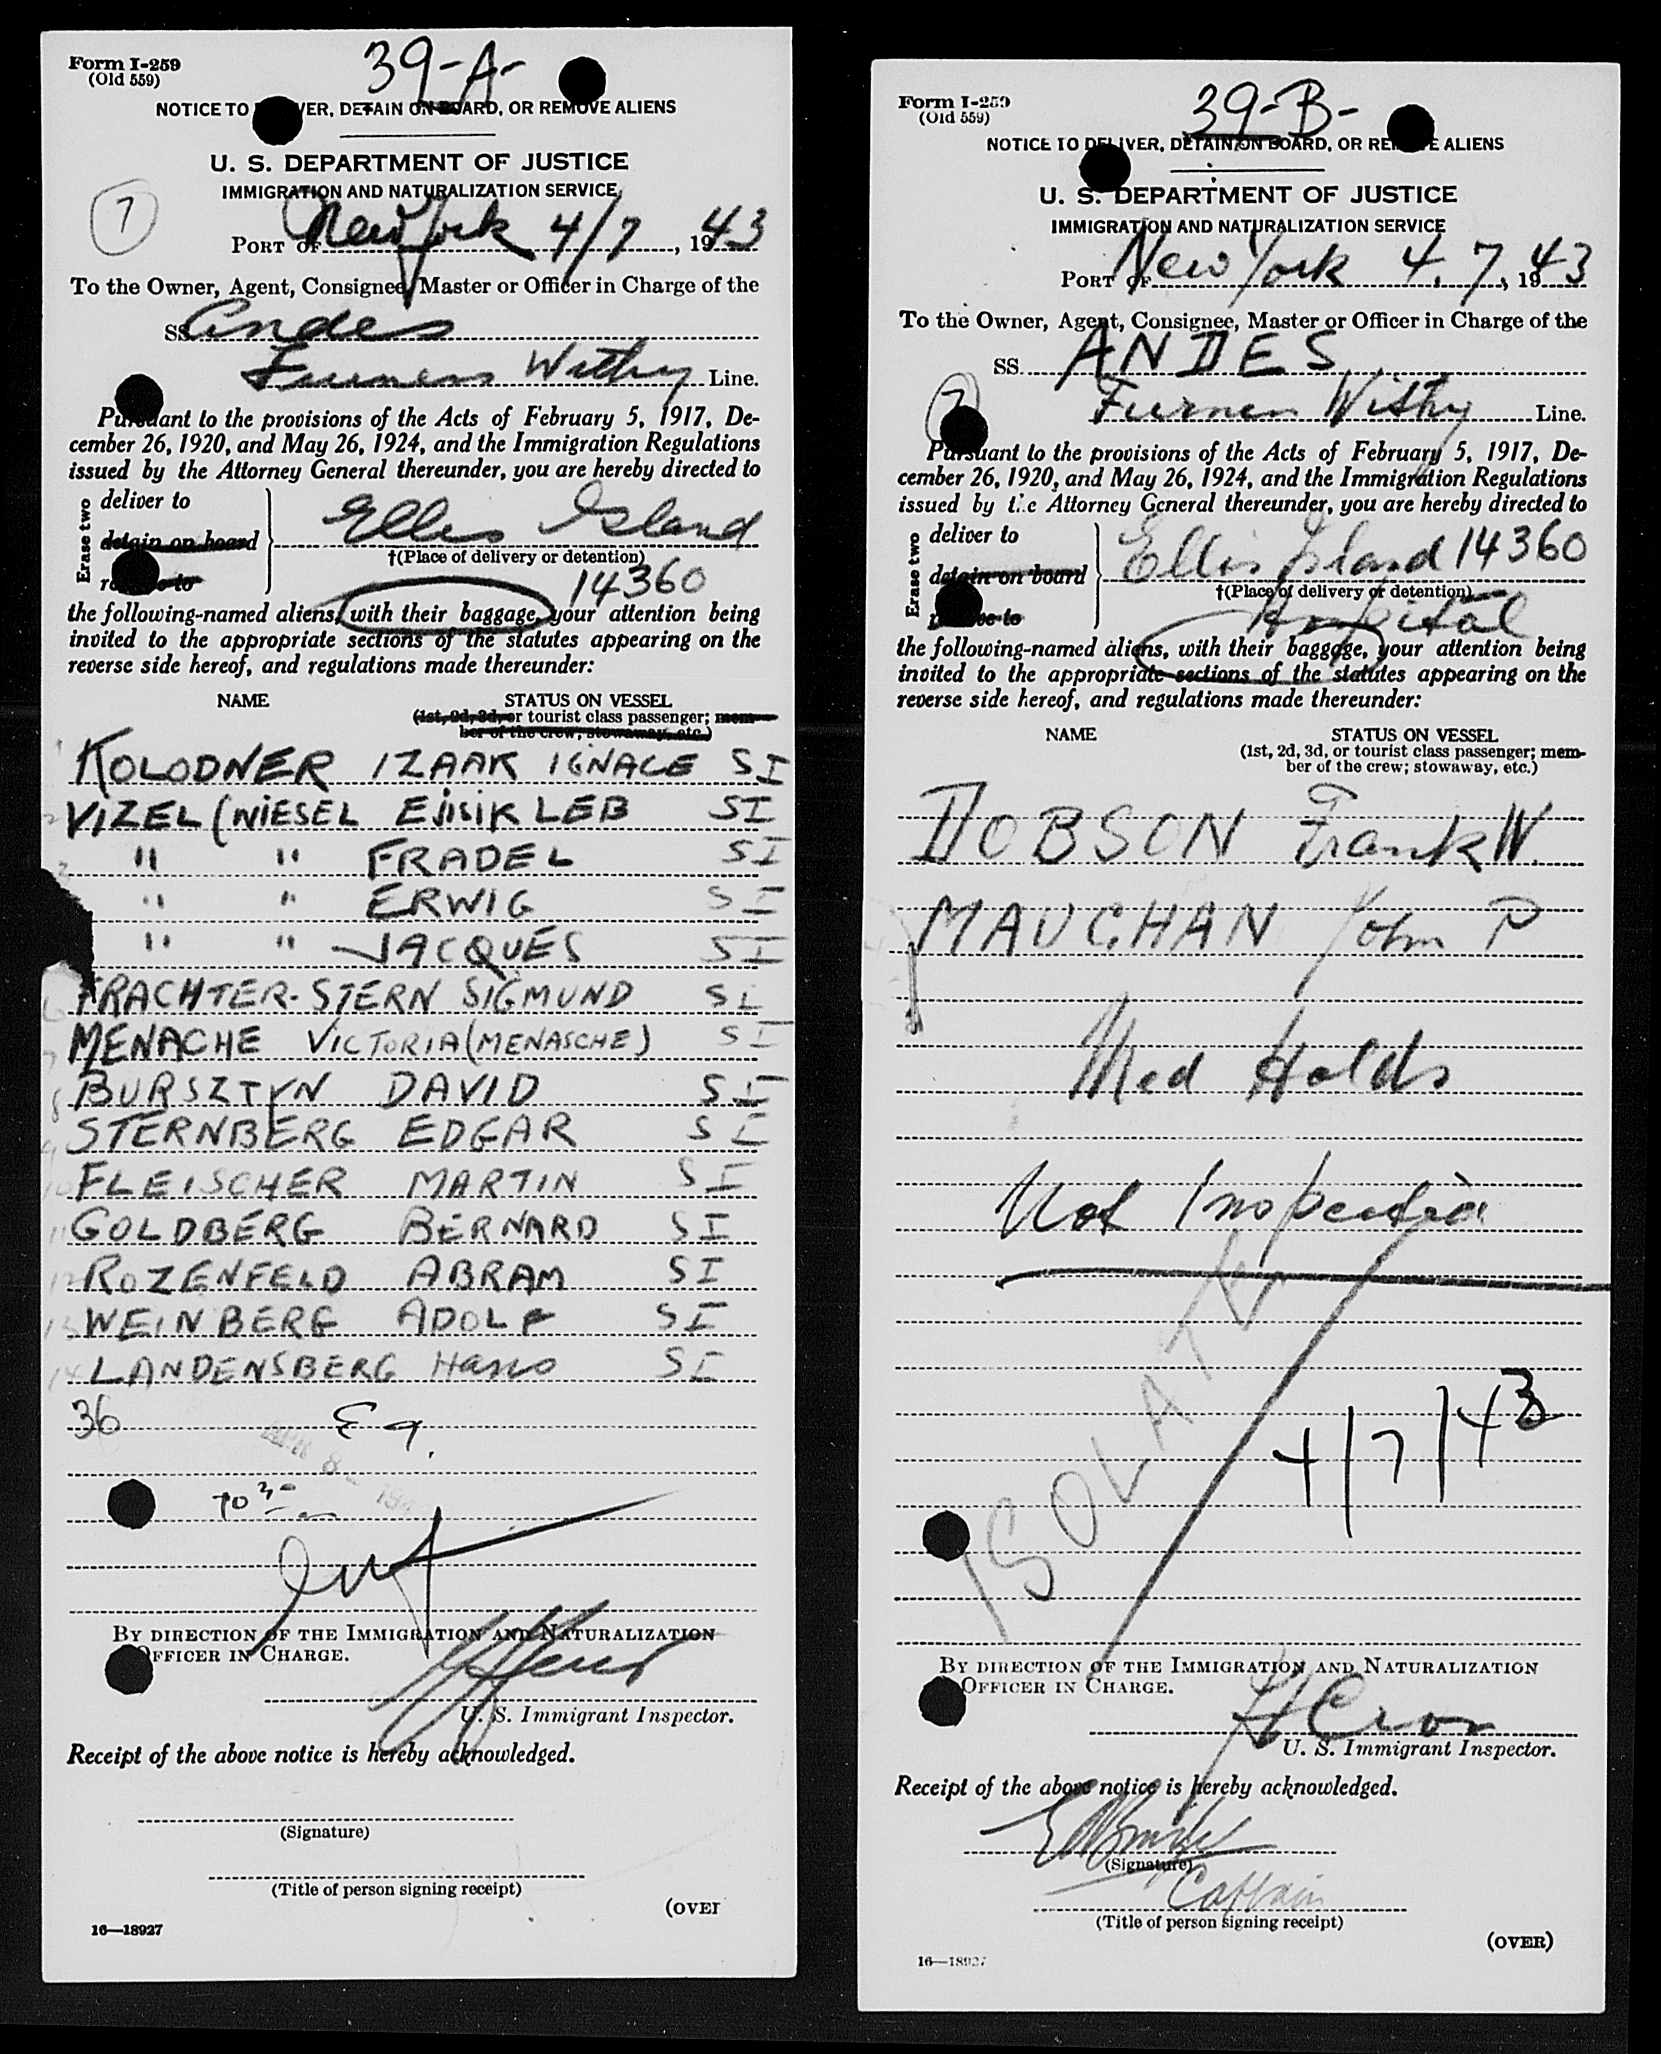 Form I-259
(Old 559)
39-A-
NOTICE TO VER, DETAIN ON BOARD, OR REMOVE ALIENS
U. S. DEPARTMENT OF JUSTICE
IMMIGRATION AND NATURALIZATION SERVICE
7
PORT OF New York 4/7, 1943
To the Owner, Agent, Consignee, Master or Officer in Charge of the
SS Andes
Furness Withy Line.
Pursuant to the provisions of the Acts of February 5, 1917, De-
cember 26, 1920, and May 26, 1924, and the Immigration Regulations
issued by the Attorney General thereunder, you are hereby directed to
Erase two
deliver to
detain on board
Ellis Island
†(Place of delivery or detention)
14360
the following-named aliens, with their baggage, your attention being
invited to the appropriate sections of the statutes appearing on the
reverse side hereof, and regulations made thereunder:
NAME STATUS ON VESSEL
(1st, 2d, 3d, or tourist class passenger; mem-
ber of the crew; stowaway, etc.)
KOLODNER IZAAK IGNACE SI
VIZEL (WIESEL EJISIK LEB SI
" " FRADEL SI
" " ERWIG SI
" " JACQUES SI
6 FRACHTER-STERN SIGMUND SI
7 MENACHE VICTORIA (MENASCHE) SI
8 BURSZTYN DAVID SI
9 STERNBERG EDGAR SI
10 FLEISCHER MARTIN SI
11 GOLDBERG BERNARD SI
12 ROZENFELD ABRAM SI
13 WEINBERG ADOLF SI
14 LANDENSBERG Hans SI
36
APR 8 - 194
BY DIRECTION OF THE IMMIGRATION AND NATURALIZATION
OFFICER IN CHARGE.
U. S. Immigrant Inspector.
Receipt of the above notice is hereby acknowledged.
(Signature)
(Title of person signing receipt)
(OVER
16—18927
Form I-259
(Old 559)
39-B-
NOTICE TO DELIVER, DETAIN ON BOARD, OR REMOVE ALIENS
U. S. DEPARTMENT OF JUSTICE
IMMIGRATION AND NATURALIZATION SERVICE
PORT OF New York 4.7, 1943
To the Owner, Agent, Consignee, Master or Officer in Charge of the
SS ANDES
7
Furness Withy Line.
Pursuant to the provisions of the Acts of February 5, 1917, De-
cember 26, 1920, and May 26, 1924, and the Immigration Regulations
issued by the Attorney General thereunder, you are hereby directed to
Erase two
deliver to
detain on board
Ellis Island 14360
†(Place of delivery or detention)
Hospital
the following-named aliens, with their baggage, your attention being
invited to the appropriate sections of the statutes appearing on the
reverse side hereof, and regulations made thereunder:
NAME STATUS ON VESSEL
(1st, 2d, 3d, or tourist class passenger; mem-
ber of the crew; stowaway, etc.)
DOBSON Frank W.
MAUGHAN John P
Med Holds
Not Inspected
ISOLATE
4/7/43
BY DIRECTION OF THE IMMIGRATION AND NATURALIZATION
OFFICER IN CHARGE.
U. S. Immigrant Inspector.
Receipt of the above notice is hereby acknowledged.
(Signature)
Captain
(Title of person signing receipt)
(OVER)
16—18927